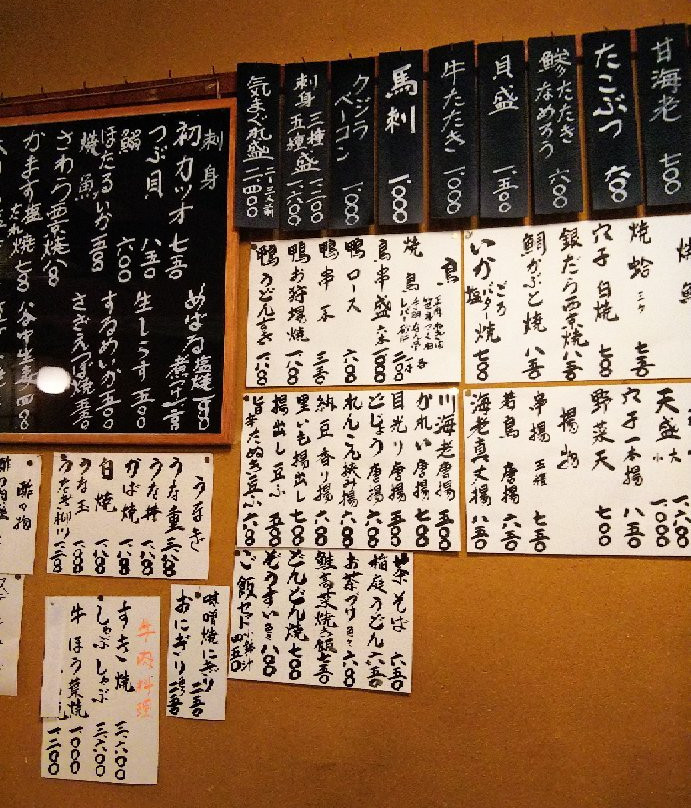 甘海老 七〇〇
たこぶつ 六〇〇
鯵タタキ なめろう 六〇〇
貝盛 一、五〇〇
牛たたき 一、〇〇〇
馬刺 一、〇〇〇
クジラベーコン 一、〇〇〇
刺身 三種盛 一、二〇〇
五種盛 一、六〇〇
気まぐれ盛 二、四〇〇
刺身
初カツオ 七五〇
つぶ貝 八五〇
鰯 六〇〇
ほたるいか 五〇〇
焼魚
さわら西京焼 八〇〇
かます塩焼 七〇〇
めばる 塩焼 煮つけ
生しらす 五〇〇
するめいか 五〇〇
さざえつぼ焼
谷中生姜 四〇〇
焼蛤 三ケ 七五〇
穴子白焼 七〇〇
銀だら西京焼 八五〇
鯛かぶと焼 八五〇
いか バター焼 七〇〇
鳥
焼鳥
鳥串盛 六本 一、〇〇〇
鴨ロース 六〇〇
鴨串 一本 三五〇
鴨お狩場焼 一、八〇〇
鴨うどんすき 一、八〇〇
天盛 大 小
穴子一本揚 八五〇
野菜天 七〇〇
揚物
串揚 五種 七五〇
若鳥唐揚 六五〇
海老真丈揚 八五〇
川海老唐揚 五〇〇
かれい唐揚 七〇〇
目光り唐揚 五〇〇
どじょう唐揚 六〇〇
れんこん挟み揚 六〇〇
納豆香り揚 六〇〇
里いも揚出し 七〇〇
揚出し豆ふ 五〇〇
たぬき豆ふ 六〇〇
茶そば 六五〇
稲庭うどん 六五〇
お茶づけ 色々 六〇〇
鮭高菜焼き飯 七五〇
どんどん焼 七〇〇
ぞうすい 色々 六〇〇
ご飯セット 四五〇
うなぎ
うな重
うな丼 一、八〇〇
かば焼 一、八〇〇
白焼 一、八〇〇
うな玉 一、八〇〇
うなぎ柳川
酢の物
味噌焼に
おにぎり
牛肉料理
すき焼 三、六〇〇
しゃぶしゃぶ 三、六〇〇
牛ほう葉焼 一、〇〇〇
一、二〇〇